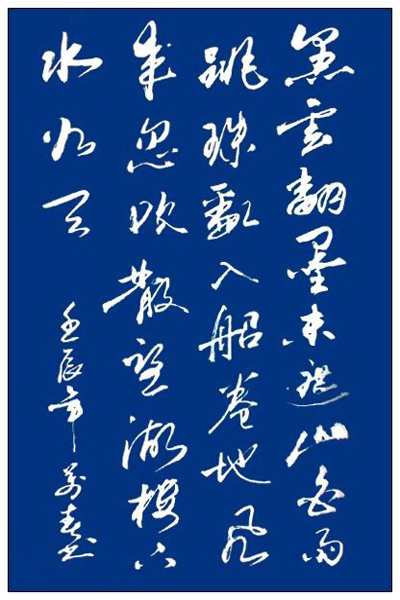 黑云翻墨未遮山白雨
跳珠亂入船卷地风
来忽吹散望湖楼下
水如天
壬辰年